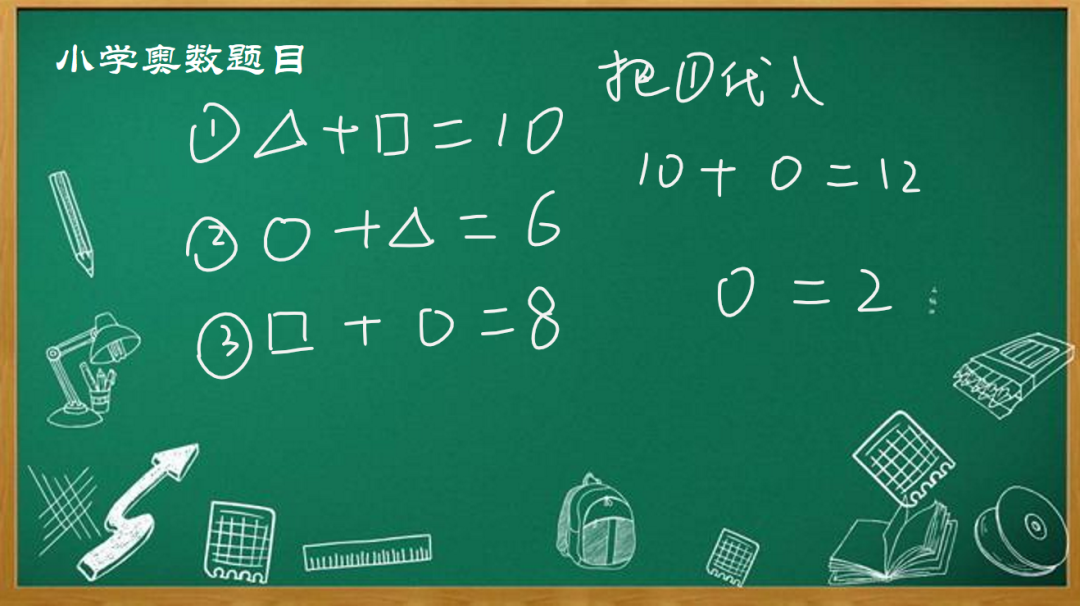 小学奥数题目
①△+□=10
②○+△=6
③□+○=8
把①代入
10+○=12
○=2